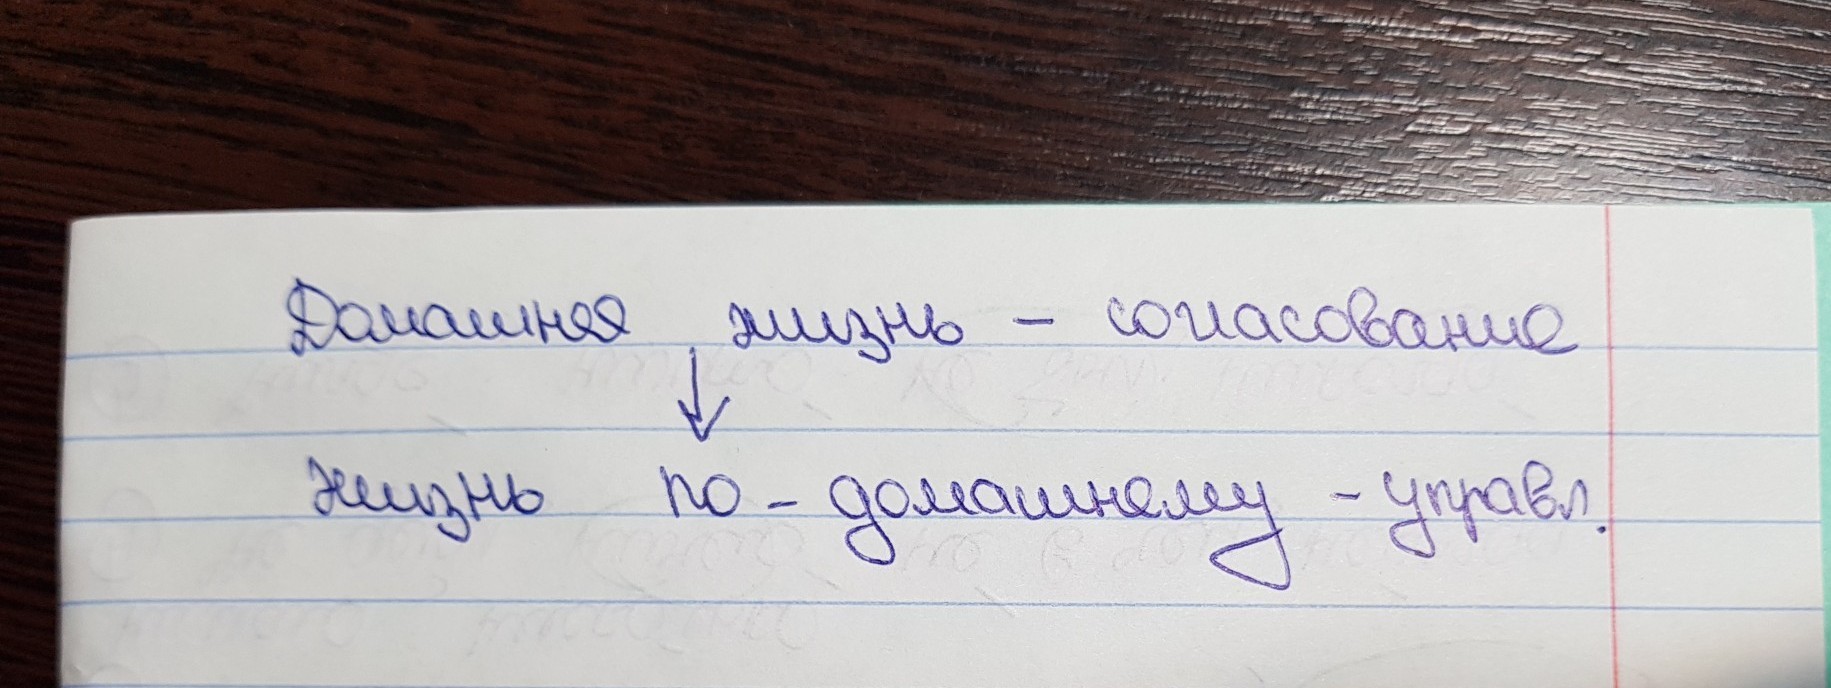 Домашняя жизнь - согласование
↓
жизнь по-домашнему - управл.